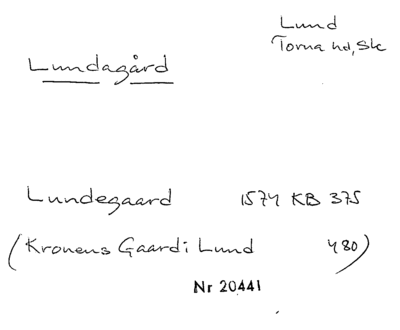 Lund
Torna hd, Sk
Lundagård
Lundegaard 1574 KB 375
(Kronens Gaard i Lund 480)
Nr 20441